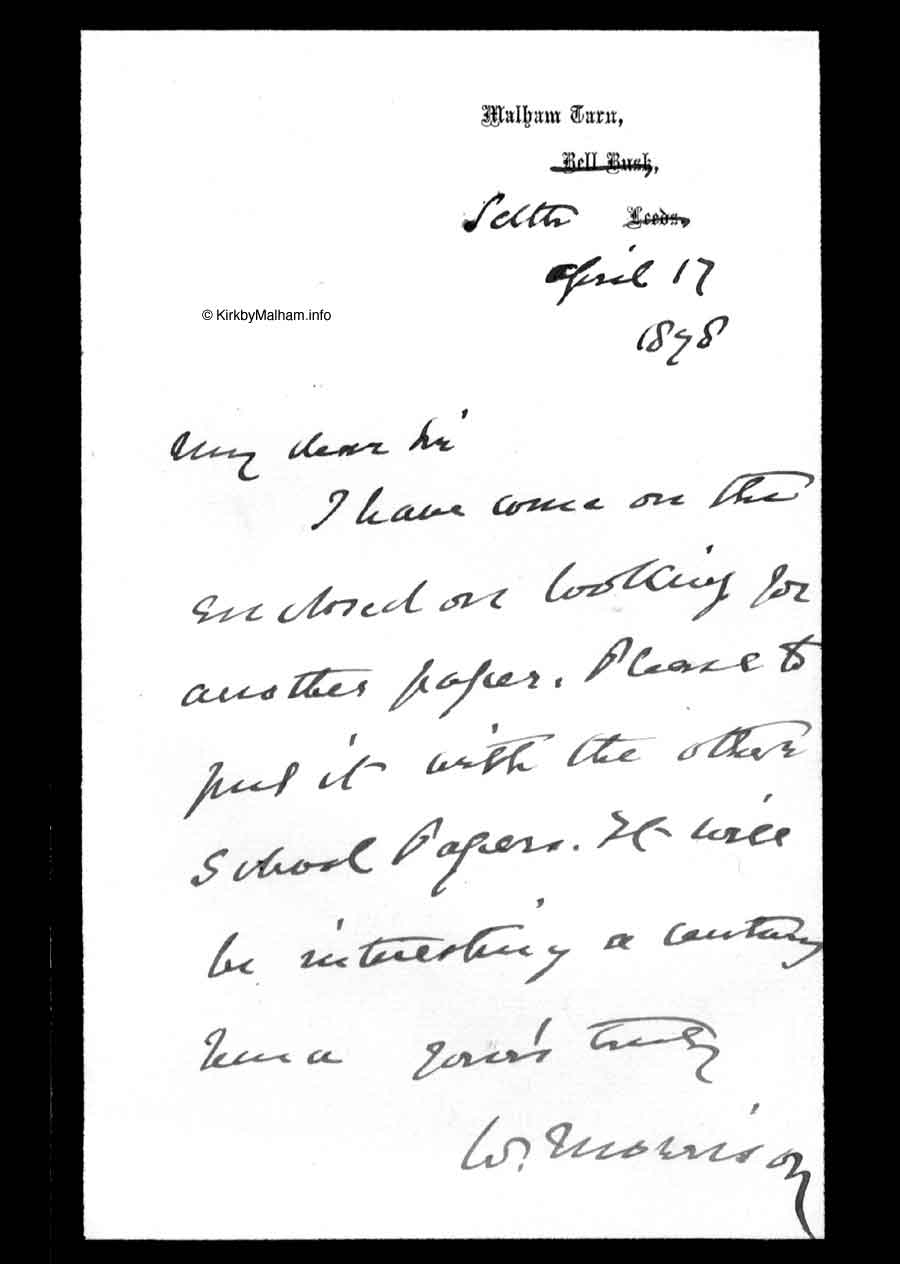 Malham Tarn,
Bell Busk,
Settle Leeds,
April 17
1878
© KirkbyMalham.info
My dear Sir
I have come on the
enclosed on looking for
another paper. Please to
put it with the other
School Papers. It will
be interesting a century
hence yours truly
W. Morrison